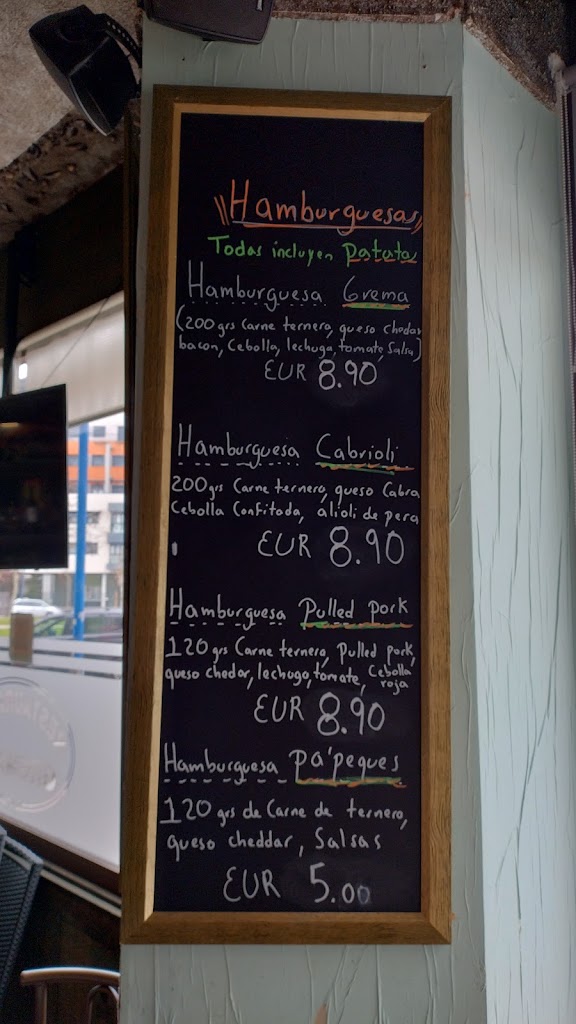 "Hamburguesas"
Todas incluyen patatas
Hamburguesa Grema
(200grs Carne ternero, queso chedar
bacon, Cebolla, lechuga, tomate, Salsa)
EUR 8.90
Hamburguesa Cabrioli
200grs Carne ternero, queso Cabra
Cebolla Confitada, alioli de pera
EUR 8.90
Hamburguesa Pulled pork
120grs Carne ternero, Pulled pork,
queso chedar, lechuga, tomate, Cebolla
roja
EUR 8.90
Hamburguesa pa'peques
120 grs de Carne de ternero,
queso cheddar, Salsas
EUR 5.00